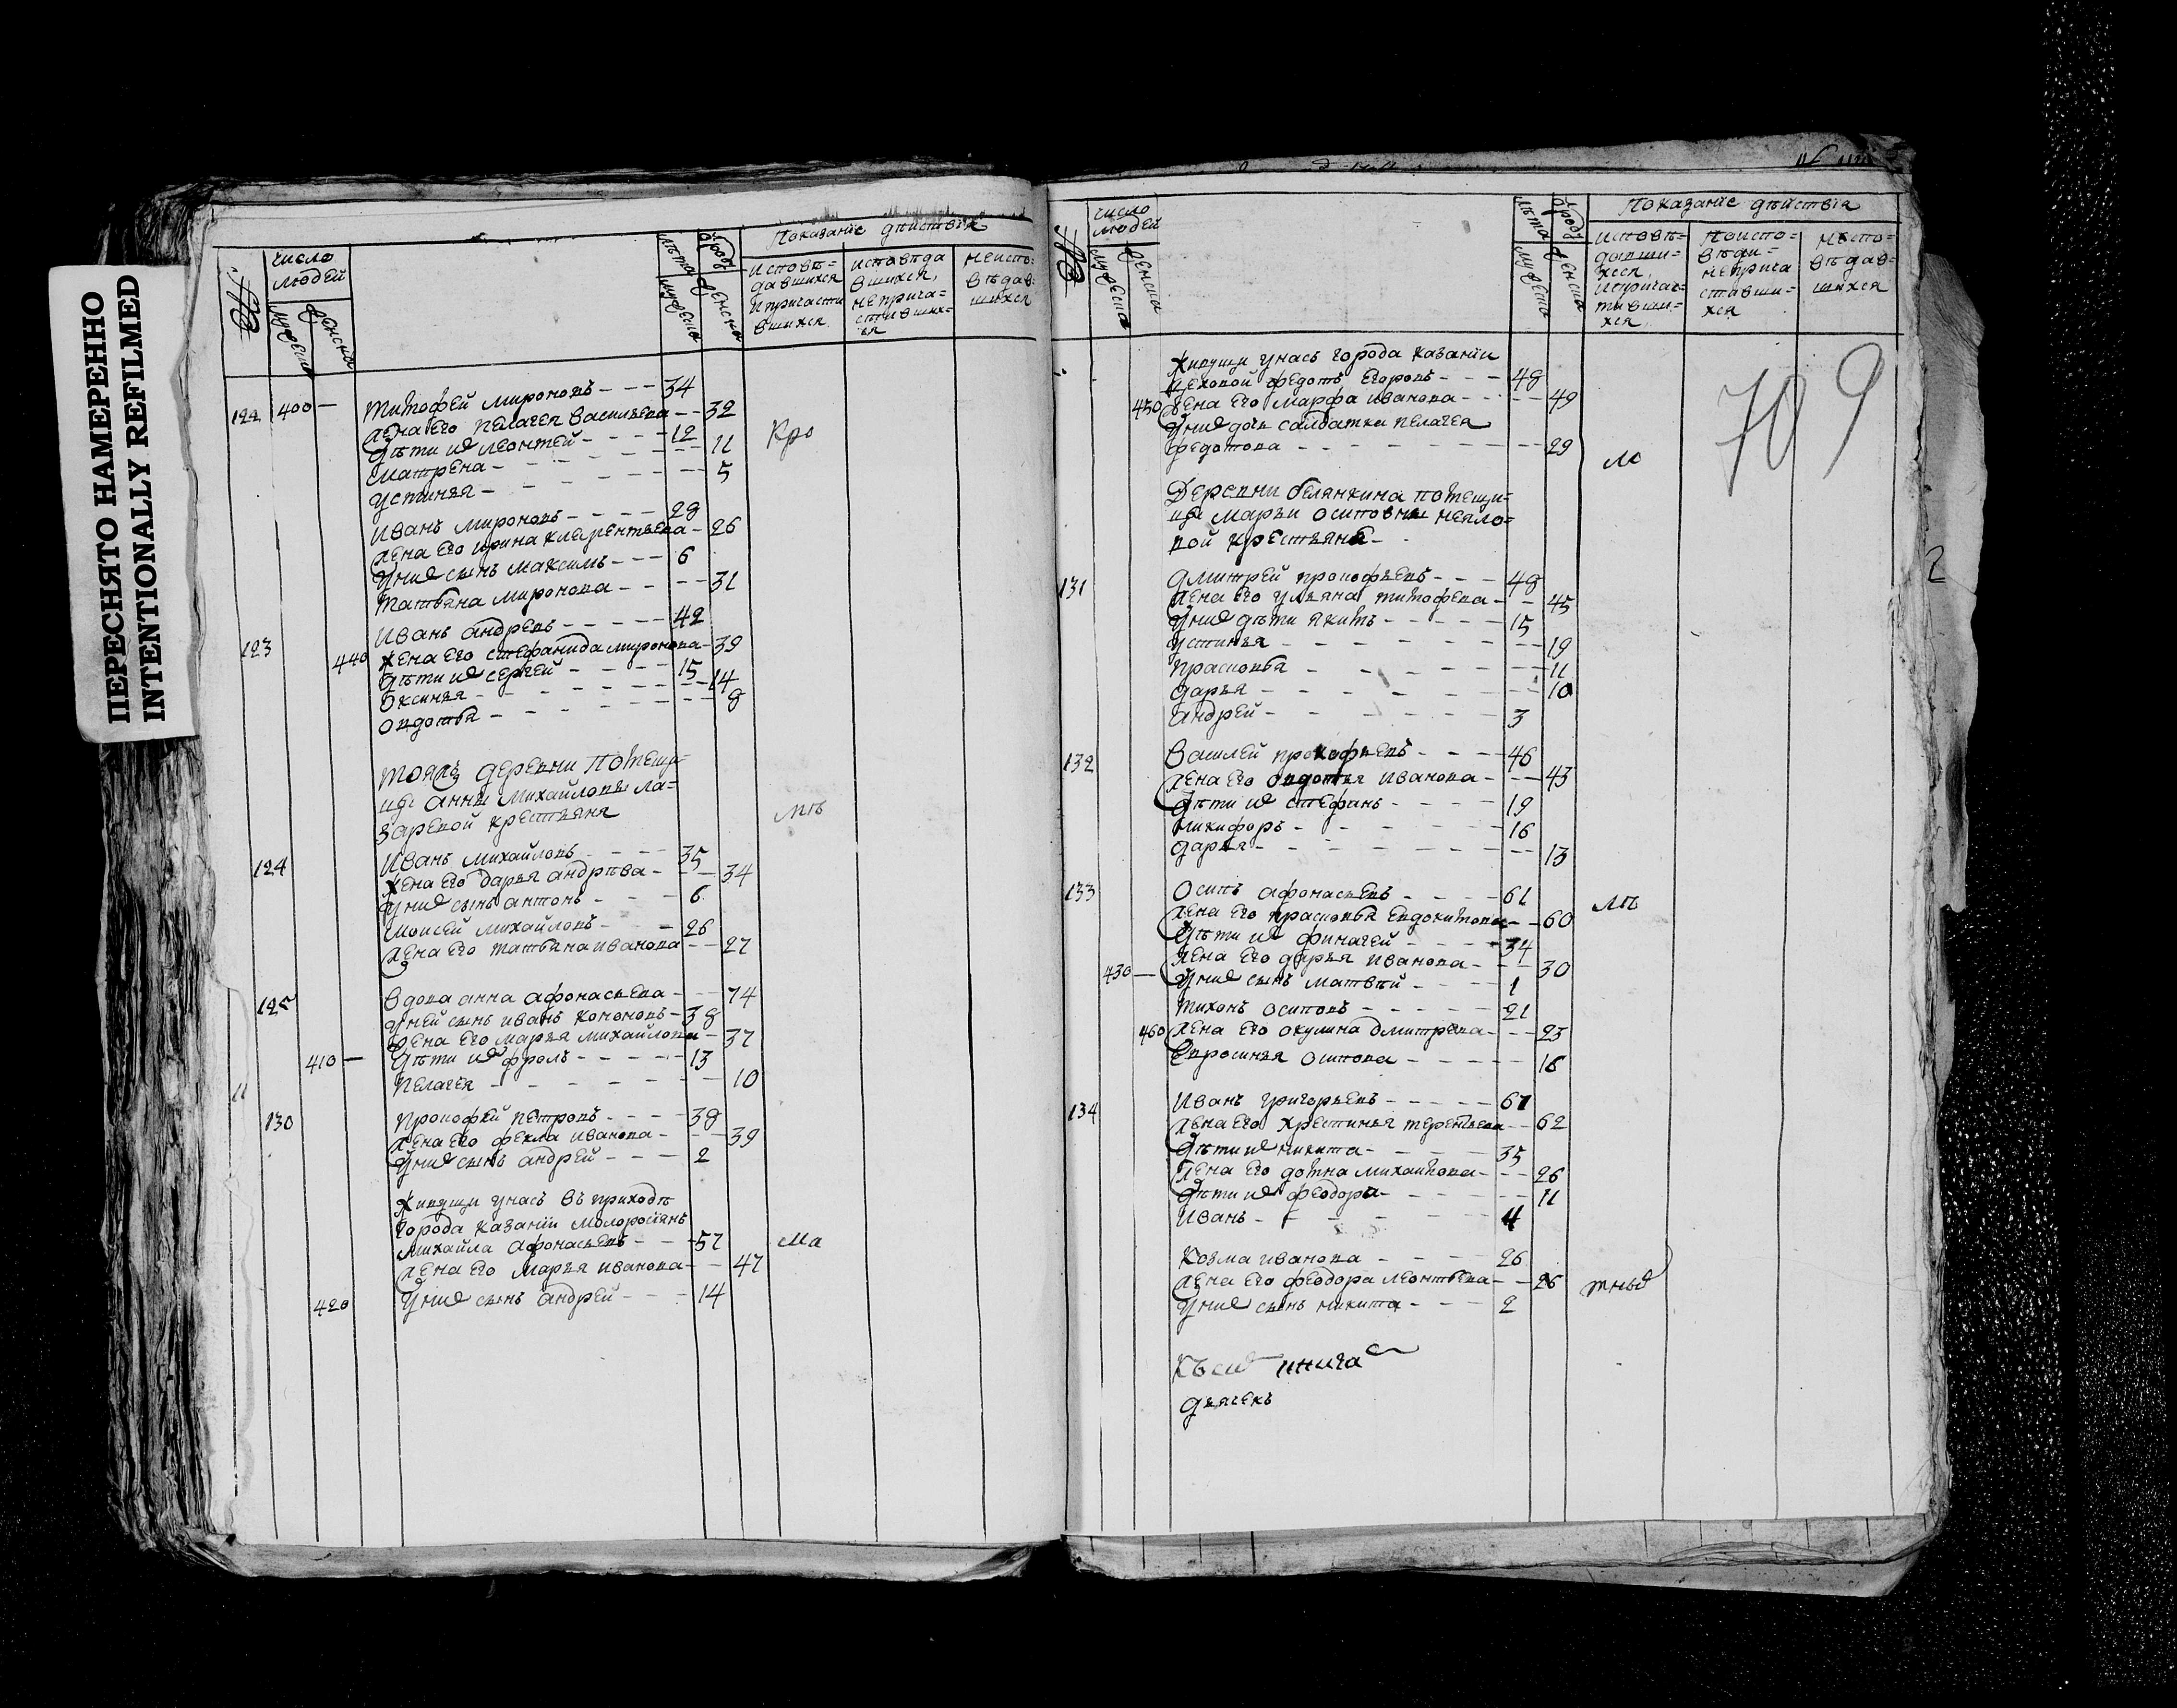 ПЕРЕСНЯТО НАМЕРЕННО
INTENTIONALLY REFILMED
число людей
мужеска
женска
лѣта
мужеска
женска
Показанїе дѣйствїя
исповѣ=
давшихся
ипричасти
вшихся
исповѣда
вшихся,
неприча=
стивших=
ся
неиспо=
вѣдав=
шихся
122 400 — Тимофей мироновъ - - - 34
жена его пелагея васильева - - 32
Кро
дѣти их леонтей - - - - 12
матрена - - - - 11
устинья - - - - 5
Иванъ мироновъ - - - - 28
жена его ирина клерентьева - 26
у них сынъ максимъ - - - 6
татьяна миронова - - - 31
123 Иванъ андреевъ - - - - - 42
440 жена его стефанида миронова - 39
дѣти их сергей - - - - 15
оксинья - - - - 14
овдотья - - - - 8
тояж деревни помещи=
цы анны михайловы ла=
заревой крестьяня
мѣ
124 Иванъ михайловъ - - - - 35
жена его дарья андрѣва - - - 34
у них сынъ антонъ - - - 6
моисей михайловъ - - - 26
жена его татьяна иванова - - 27
125 вдова анна афонасьева - - - 74
у ней сынъ иванъ кононовъ - 38
жена его марья михайлова - 37
410 — дѣти их фролъ - - - - - 13
пелагея - - - - - - 10
11
130 прокофей петровъ - - - - 38
жена его фекла иванова - - - 39
у них сынъ андрей - - - 2
живущи унасъ въ приходѣ
города казанїи молоросїянъ
михайла афонасьевъ - - - 57
ма
жена его марья иванова - - 47
420 у них сынъ андрей - - - 14
число
людей
мужеска
женска
лѣта
мужеска
женска
Показанїе дѣйствїя
исповѣ=
давши=
хся
ипричас=
тивши=
хся
неприча
ставши=
хся
неиспо=
вѣдав=
шихся
живущи унасъ города казанїи
цеховой федотъ егоровъ - - - 48
70 9
450 жена его марфа иванова - - - - 49
у них дочь салдатка пелагея
федотова - - - - - - - 29
ло
Деревни белянкина помещи=
цы марьи осиповны неяло=
вой крестьяня -
2
131 дмитрей прокофьевъ - - - 48
жена его ульяна тимофева - - 45
у них дѣти якимъ - - - - - 15
устинья - - - - - - 19
прасковья - - - - - - 11
дарья - - - - - - 10
андрей - - - - - - 3
132 василей прокофьевъ - - - - 46
жена его овдотья иванова - - - - 43
дѣти их стефанъ - - - - 19
никифоръ - - - - - 16
дарья - - - - - - 13
133 Осипъ афонасьевъ - - - - 61
лѣ
жена его прасковья евдокимова - - 60
дѣти их финагей - - - - 34
жена его дарья иванова - - - - 30
430 — у них сынъ матвѣй - - - - 1
тихонъ осиповъ - - - - - 21
460 жена его окулина дмитрева - - - 23
Евросинья осипова - - - - - 16
134 Иванъ григорьевъ - - - - - 67
жена его хрестинья терентьева - - 62
дѣти их никита - - - - - 35
жена его домна михайлова - - - 26
дѣти их феодора - - - - - 11
иванъ - - - - - - 4
Козма иванова - - - - 26
жена его феодора леонтьева - - 26
тных
у них сынъ никита - - - 2
дьячекъ